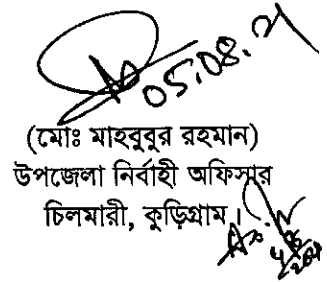 05.08.21
(মোঃ মাহবুবুর রহমান)
উপজেলা নির্বাহী অফিসার
চিলমারী, কুড়িগ্রাম।